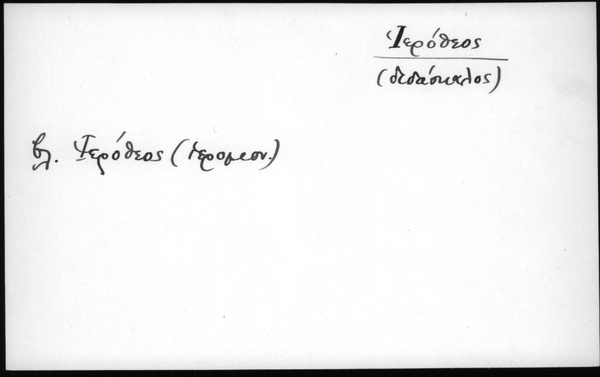 Ἱερόθεος
(διδάσκαλος)
βλ. Ἱερόθεος (ἱερομον.)